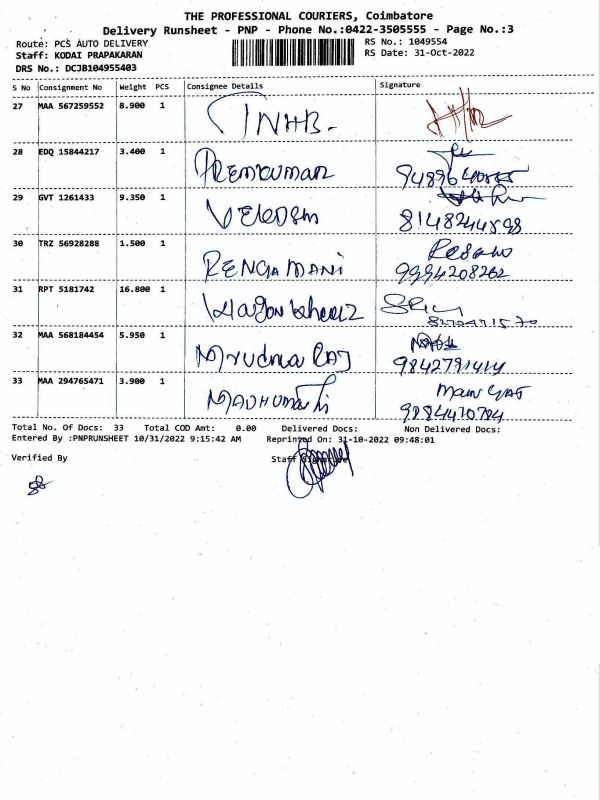 THE PROFESSIONAL COURIERS, Coimbatore
Delivery Runsheet - PNP - Phone No.:0422-3505555 - Page No.:3
Route: PCS AUTO DELIVERY
Staff: KODAI PRAPAKARAN
DRS No.: DCJB104955403
RS No.: 1049554
RS Date: 31-Oct-2022
S No Consignment No Weight PCS Consignee Details Signature
27 MAA 567259552 8.900 1
28 EDQ 15844217 3.400 1 PREMKUMAR
29 GVT 1261433 9.350 1
8148244598
30 TRZ 56928288 1.500 1 RENGAMANi
9994208262
31 RPT 5181742 16.800 1
32 MAA 568184454 5.950 1
9842791414
33 MAA 294765471 3.900 1 MADHUMATi
Total No. Of Docs: 33 Total COD Amt: 0.00 Delivered Docs: Non Delivered Docs:
Entered By :PNPRUNSHEET 10/31/2022 9:15:42 AM Reprinted On: 31-10-2022 09:48:01
Verified By Staff Signature